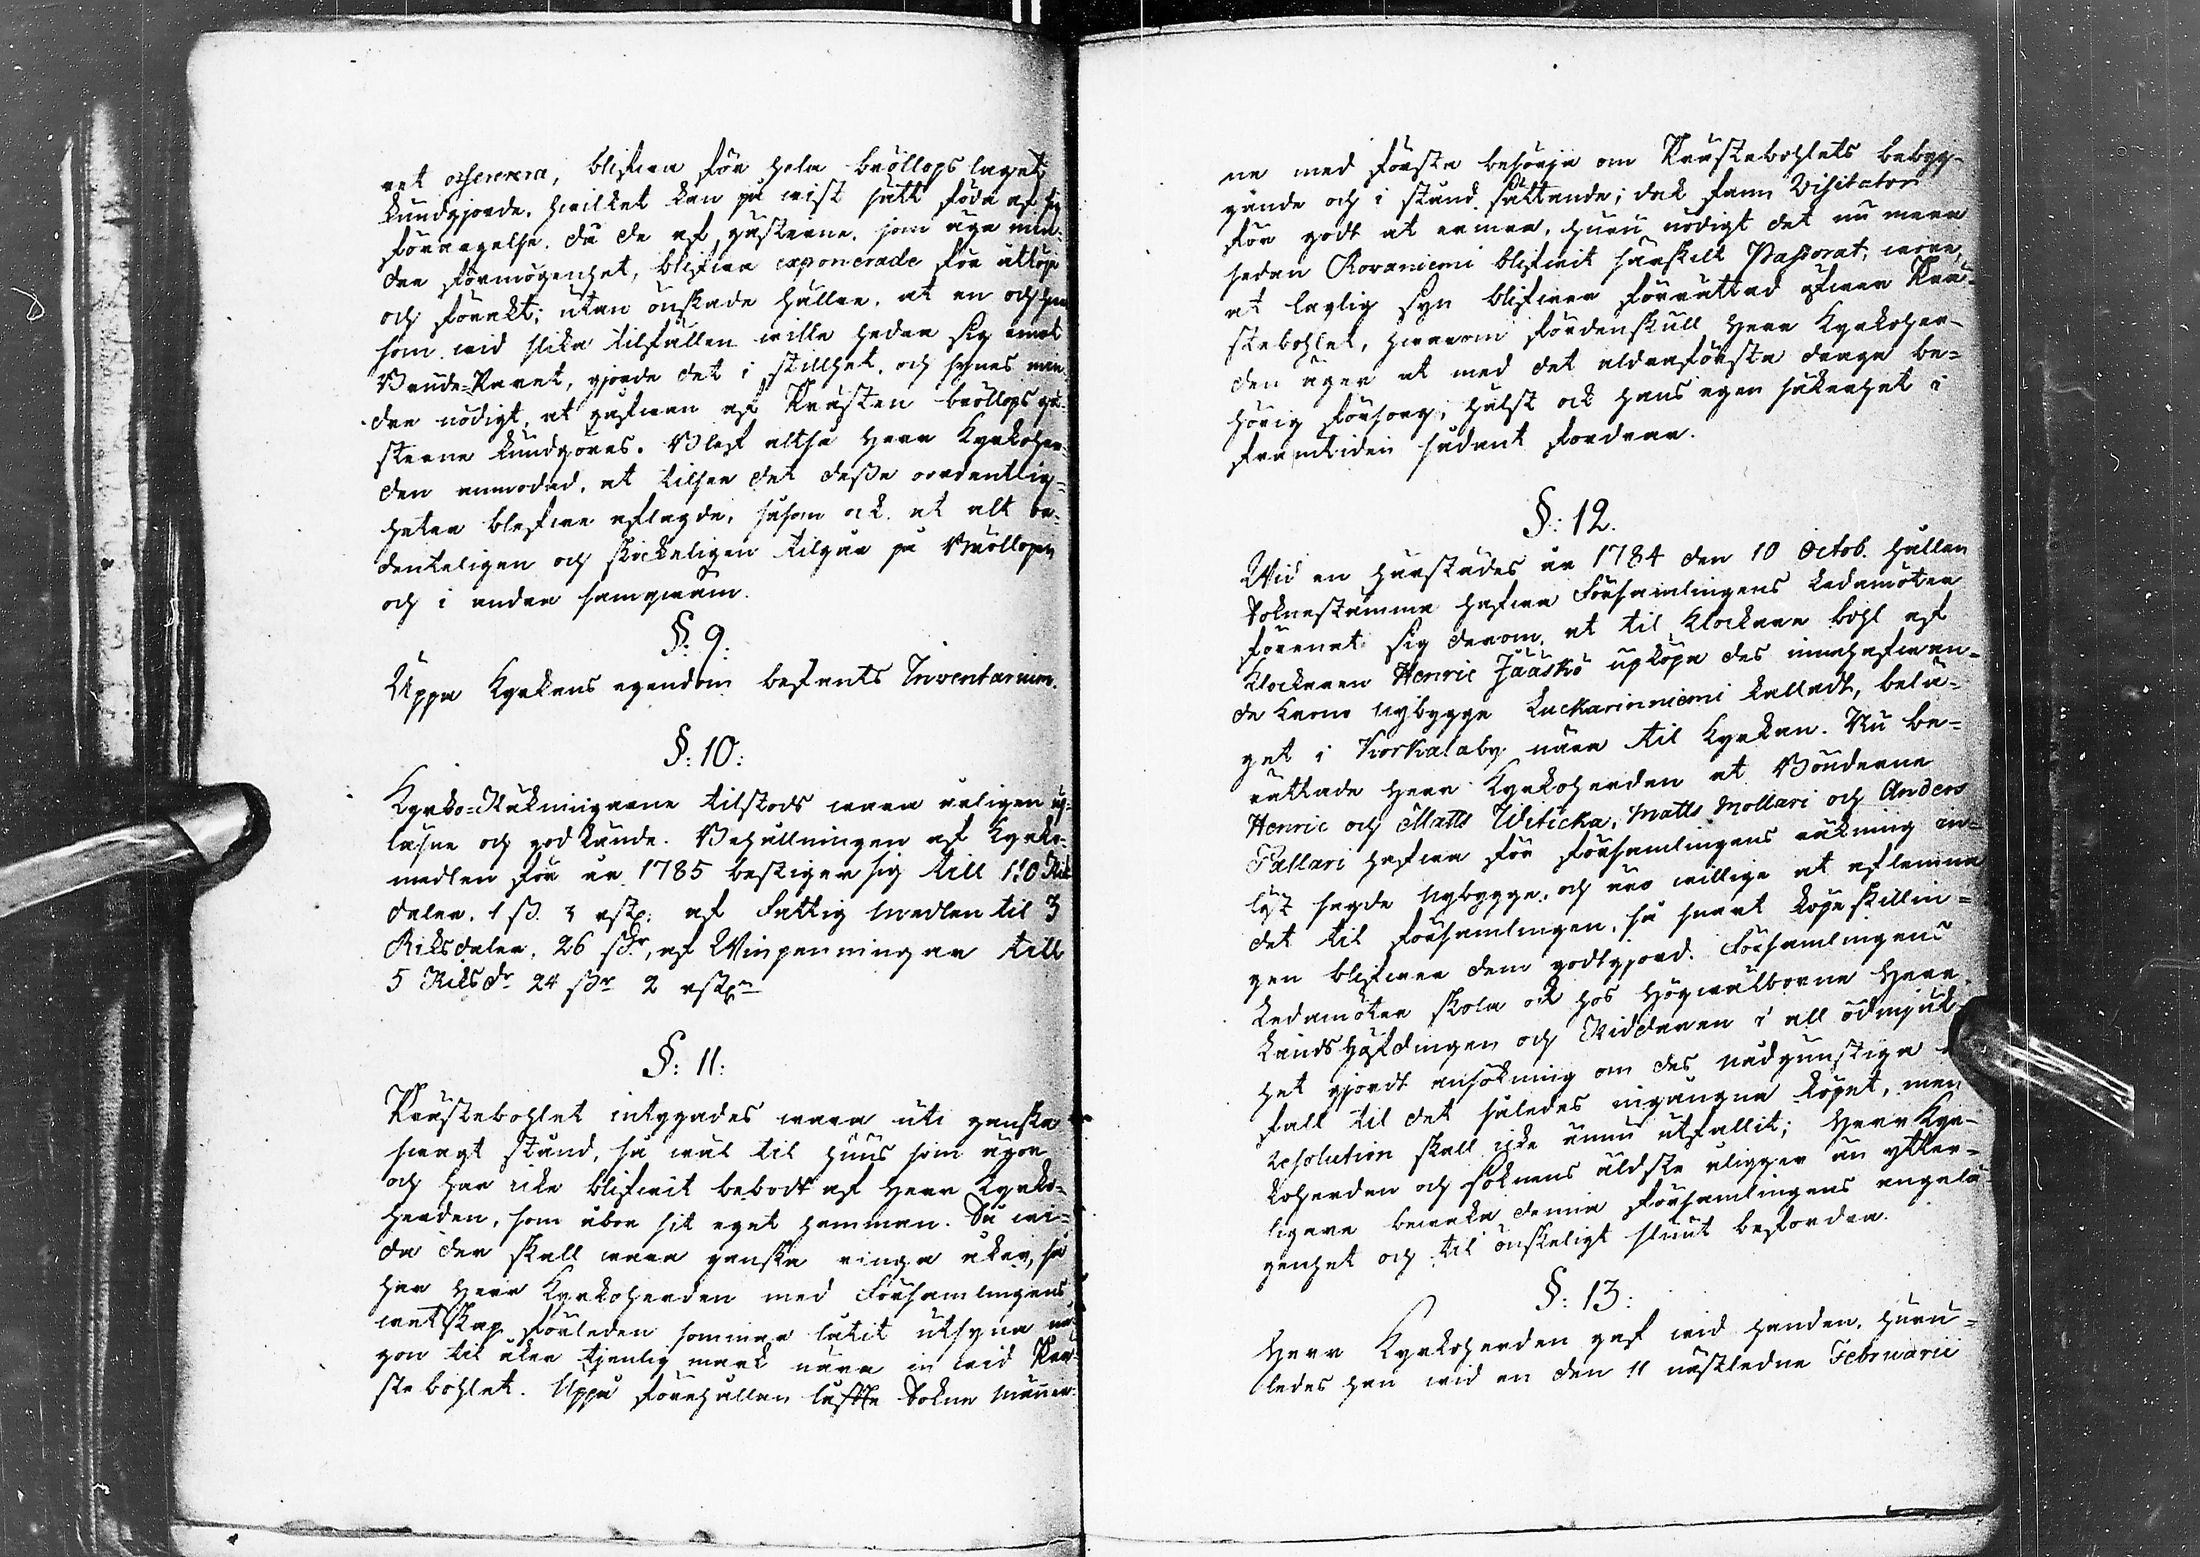 ret offerera, blifwa för hela bröllops laget
kundgjorde, hwilket kan på wist sätt föda af sig
förargelse, då de af gästerne, som äga min-
dre förmögenhet, blifwa exponerade för åtlöje
och förakt; utan önskade hällre, at en och hwar
som wid slika tilfällen wille hedra sig emot
Brude-Paret, gjorde det i stillhet, och synes min-
dre nödigt, at gåfwan af Prästen bröllops gä-
sterne kundgöres. Blef altså Herr Kyrkoher-
den anmodad, at tilse det desse oordentlig-
heter blefwe aflagde, såsom ock at alt or-
denteligen och skickeligen tilgår på Bröllopen
och i andra samqwäm.
§: 9:
Uppå Kyrkans egendom befants Inventarium.
§: 10:
Kyrko-Räkningarne tilstods wara årligen up-
läsne och godkände. Behållningen af Kyrko-
medlen för år 1785 bestiger sig till 110 Riks
daler, 1 ß. 3 rst: af Fattig medlen til 3
Riksdaler, 26 ßr, af Winpenningar till
5 Riksdr 24 ßr 2 rst
§: 11:
Prästebohlet intygades wara uti ganska
swagt stånd, så wäl til huus som ägor
och har icke blifwit bebodt af Herr Kyrko-
herden, som åbor sit eget hemman. Så wi-
da der skall wara ganska ringa åker, så
har Herr Kyrkoherden med Församlingens
wetskap förleden sommar låtit utsyna nå-
gon til åker tjenlig mark nära in wid Prä-
stebohlet. Uppå förehållan läfte Sokne männer-
ne med första besörja om Prästebohlets bebyg-
gände och i stånd sättande; dock fann Visitator
för godt at ermra, huru nödigt det nu mera
sedan Rovaniemi blifwit särskilt Pastorat, wore,
at laglig syn blifwer förrättad öfwer Prä-
stebohlet, hwarom fördenskull Herr Kyrkoher-
den äger at med det aldraförsta draga be-
hörig försorg; hälst ock hans egen säkerhet i
framtiden sådant fordrar.
§: 12.
Wid en härstädes år 1784 den 10 Octob. hållen
Soknestämma hafwa Församlingens Ledamöter
förenat sig derom, at til Klockare bohl af
Klockaren Henric Jääskö upköpa des innehafwan-
de Krono Nybygge Luckarinniemi kalladt, belä-
get i Korkalaby nära til Kyrkan. Nu be-
rättade Herr Kyrkoherden at Bönderne
Henric och Matts Witicka, Matts Mollari och Anders
Pallari hafwa för församlingens räkning in-
löst sagde Nybygge, och äro willige at aflemna
det til församlingen, så snart köpeskillin-
gen blifwer dem godtgjord. Församlingens
Ledamöter skola ock hos Högwälborne Herr
Landshöfdingen och Riddaren i all ödmjuk-
het gjordt ansökning om des nådgunstiga
fall til det således ingångna köpet, men
resolution skall icke ännu utfallit; Herr Kyr-
koherden och soknens äldste åligger än ytter-
ligare bewaka denna församlingens angelä-
genhet och til önskeligt sluut befordra.
§: 13:
Herr Kyrkoherden gaf wid handen, huru-
ledes han wid en den 11 nästledne Februarii